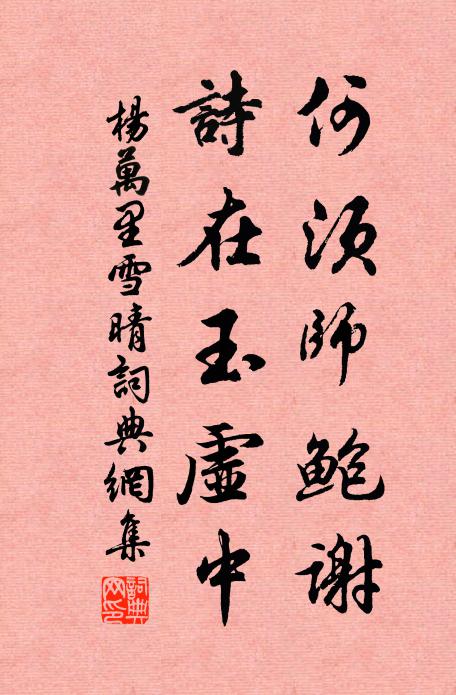 何須師鮑謝
詩在玉虛中
楊萬里雪晴詞典網集
詞典网印